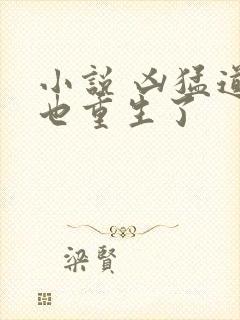 小说 凶猛道
也重生了
梁賢